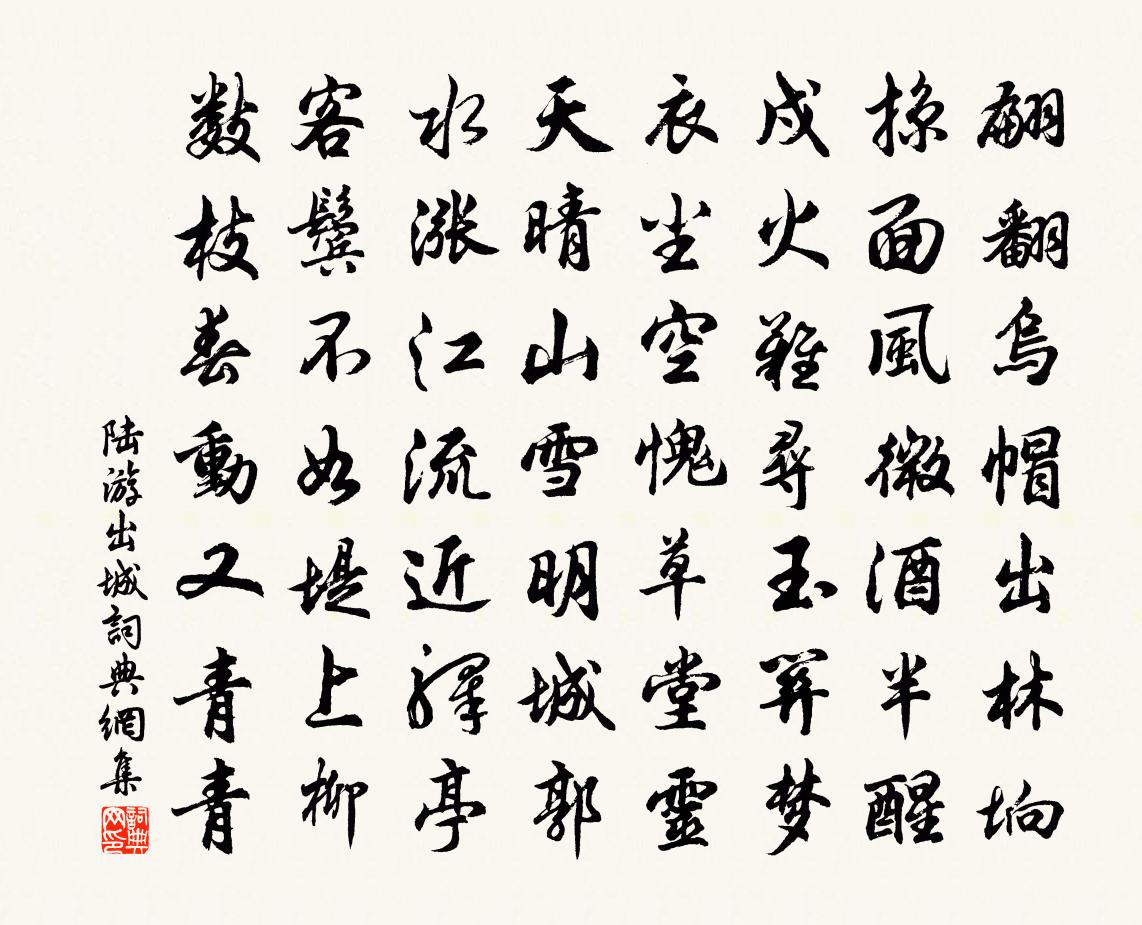 翩翻烏帽出林坰
掠面風微酒半醒
戍火難尋玉關梦
衣尘空愧草堂靈
天晴山雪明城郭
水漲江流近驛亭
客鬢不如堤上柳
數枝春動又青青
陸游出城詞典網集
詞典网印